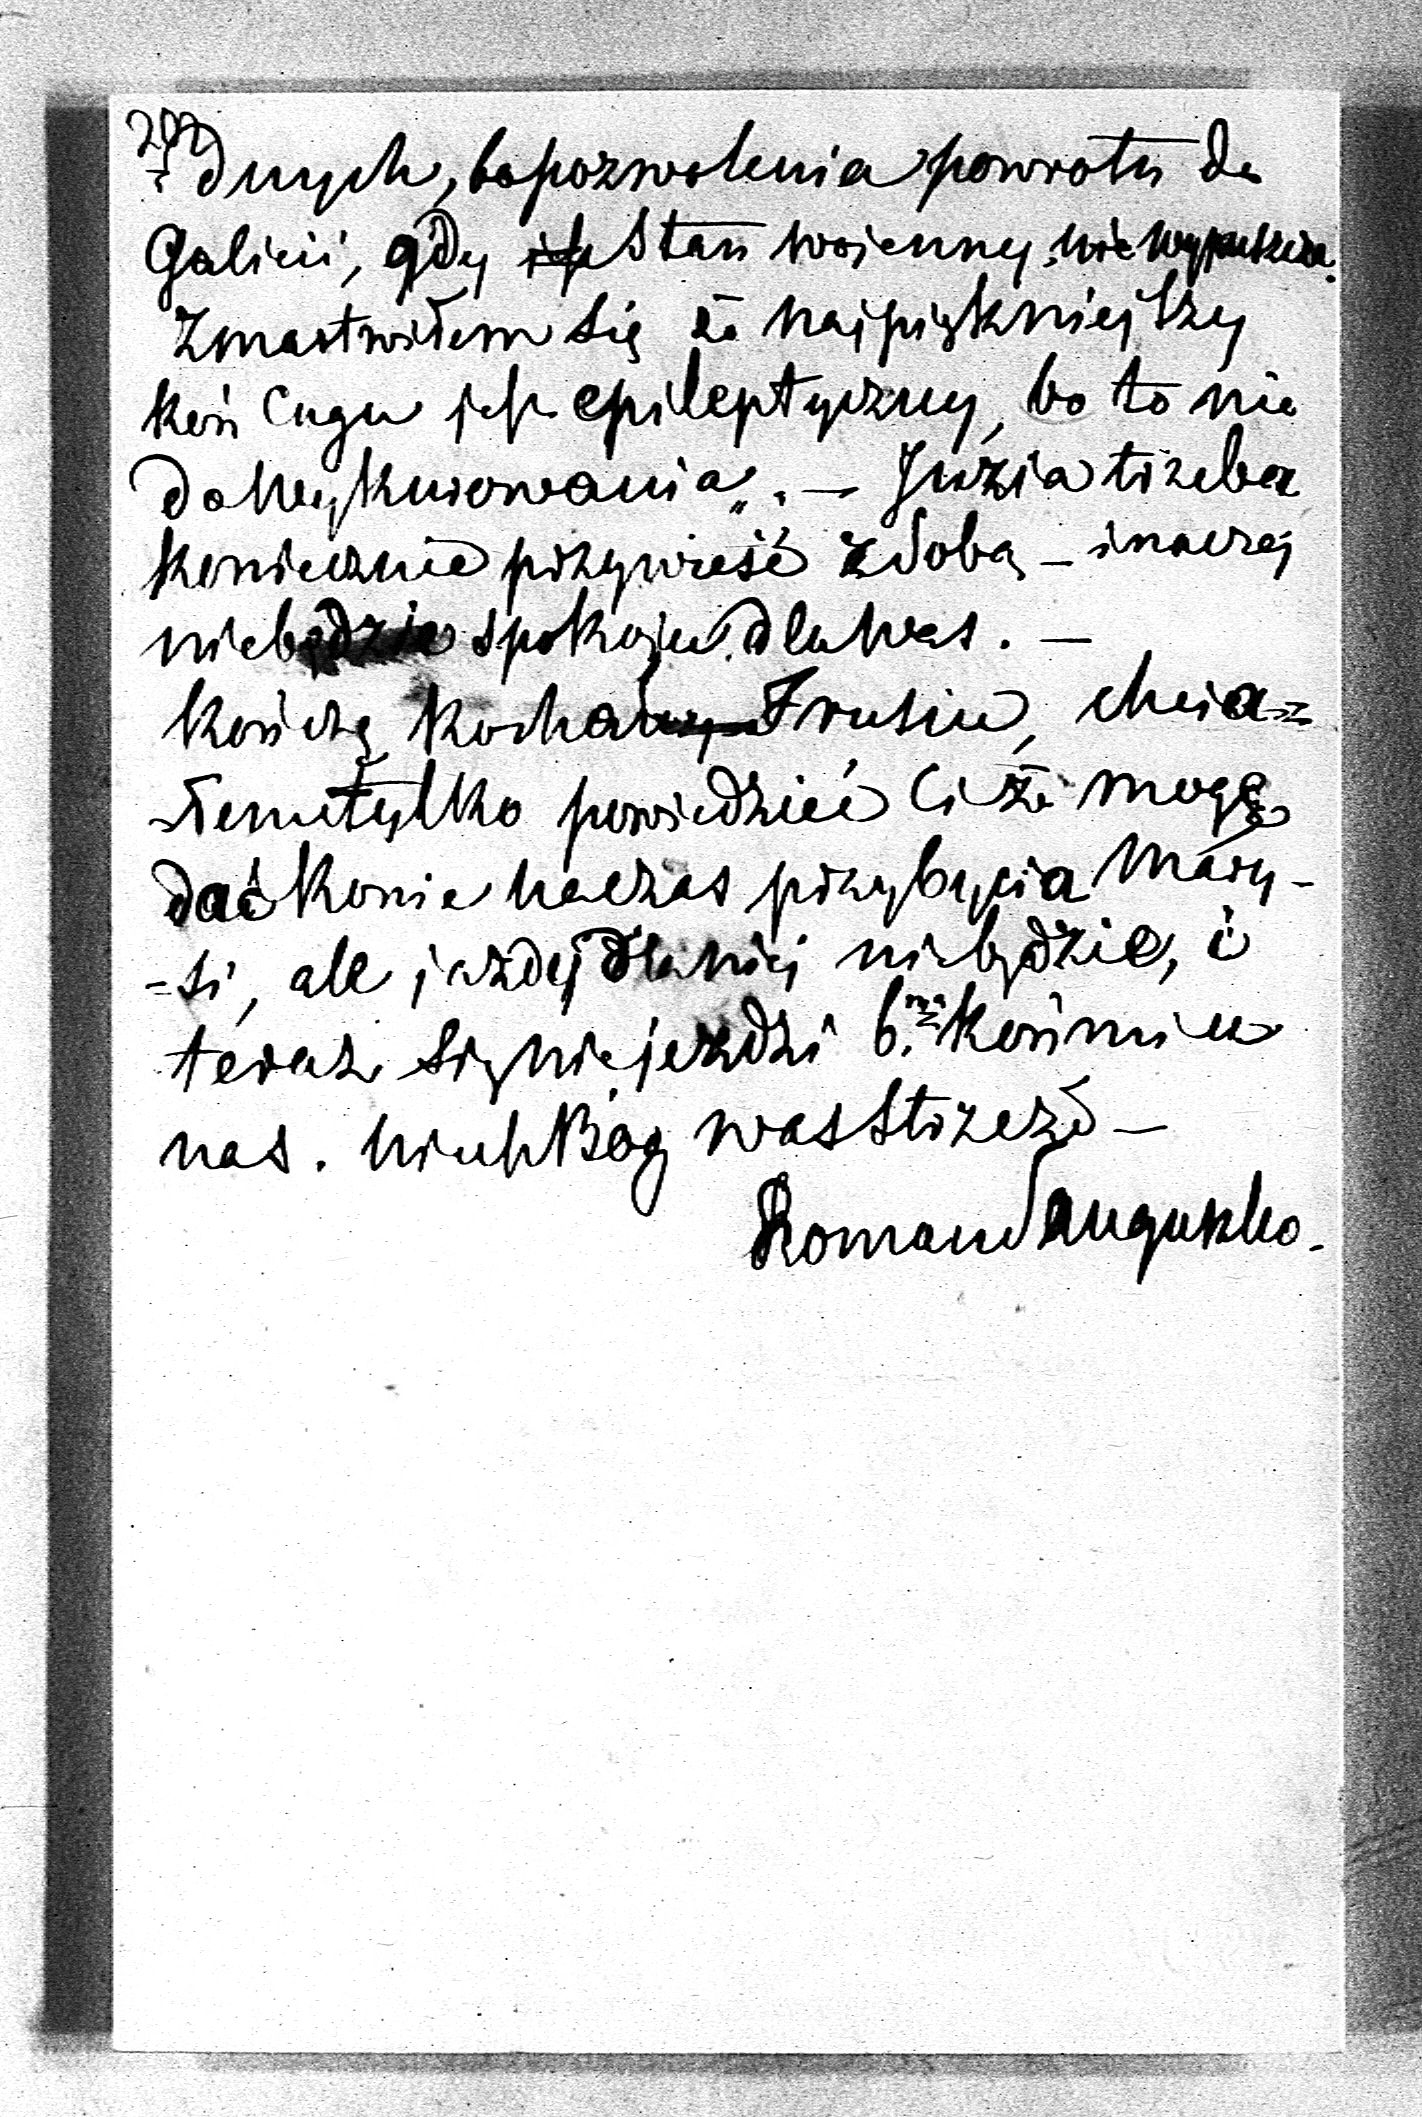 dnych, bo pozwolenia powrotu do
Galicii, gdy jest stan wojenny nie wypuszcza.
Zmartwiłem się że najpiękniejszy
koń Cugu jest epileptyczny, bo to nie
do wykurowania. — Juzia trzeba
koniecznie przywieść z sobą – inaczej
niebędzie spokoju dla Was. —
Kończę kochany Zrusiu, chcia=
=łem tylko powiedzieć Ci że mogę
dać konie na czas przybycia Mary-
=si, ale jazdy dla niej niebędzie, i
teraz się nie jeździ 6.ma końmi u
nas. Niech Bóg was strzeże —
Roman Sanguszko.